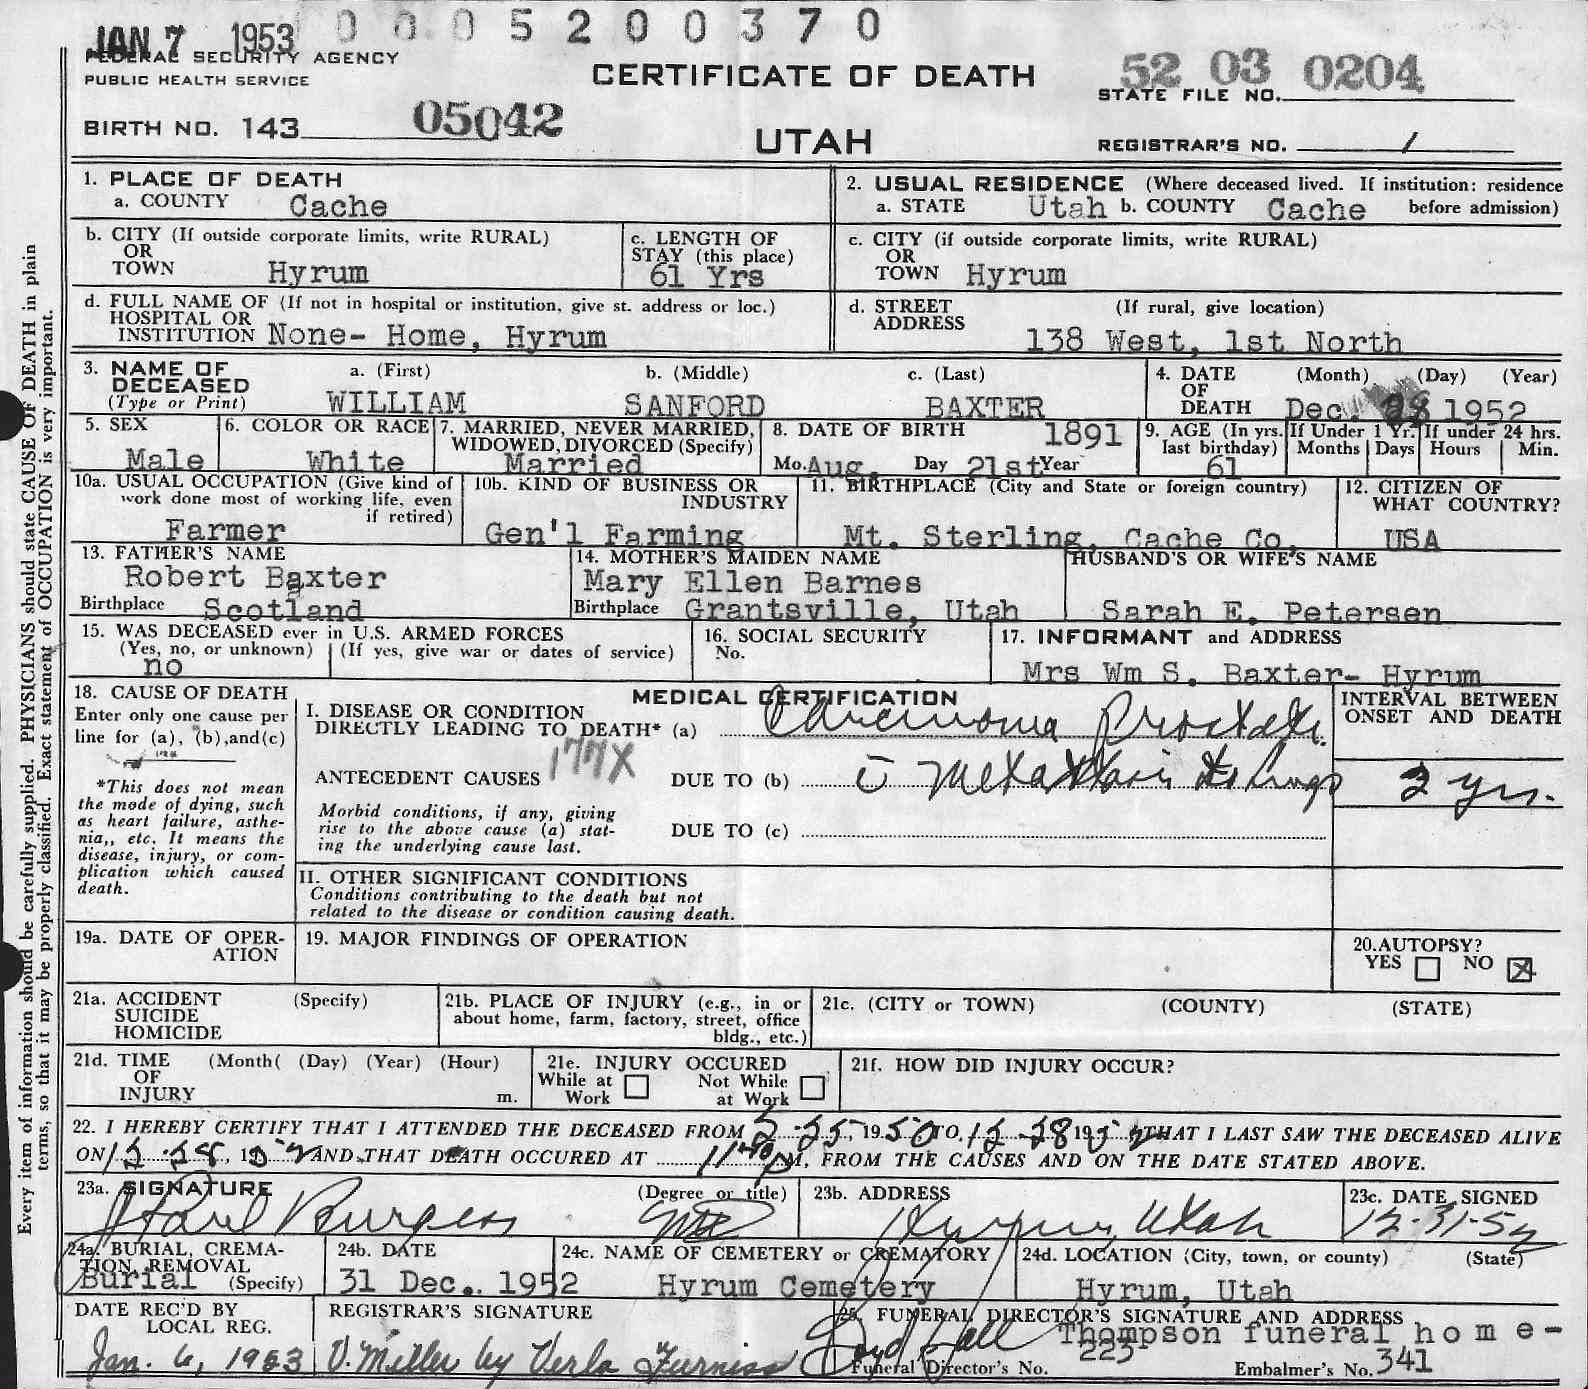 JAN 7 1953 0 0 0 5 2 0 0 3 7 0
FEDERAL SECURITY AGENCY
PUBLIC HEALTH SERVICE
CERTIFICATE OF DEATH
52 03 0204
STATE FILE NO.
BIRTH NO. 143 05042
UTAH
REGISTRAR'S NO. 1
1. PLACE OF DEATH
a. COUNTY Cache
2. USUAL RESIDENCE (Where deceased lived. If institution: residence
a. STATE Utah b. COUNTY Cache before admission)
b. CITY (If outside corporate limits, write RURAL)
OR
TOWN Hyrum
c. LENGTH OF
STAY (this place)
61 Yrs
c. CITY (if outside corporate limits, write RURAL)
OR
TOWN Hyrum
d. FULL NAME OF (If not in hospital or institution, give st. address or loc.)
HOSPITAL OR
INSTITUTION None- Home, Hyrum
d. STREET (If rural, give location)
ADDRESS
138 West, 1st North
3. NAME OF
DECEASED
(Type or Print)
a. (First) b. (Middle) c. (Last)
WILLIAM SANFORD BAXTER
4. DATE (Month) (Day) (Year)
OF
DEATH Dec. 28 1952
5. SEX
Male
6. COLOR OR RACE
White
7. MARRIED, NEVER MARRIED,
WIDOWED, DIVORCED (Specify)
Married
8. DATE OF BIRTH 1891
Mo. Aug. Day 21st Year
9. AGE (In yrs.
last birthday)
61
If Under 1 Yr.
Months Days
If under 24 hrs.
Hours Min.
10a. USUAL OCCUPATION (Give kind of
work done most of working life, even
if retired)
Farmer
10b. KIND OF BUSINESS OR
INDUSTRY
Gen'l Farming
11. BIRTHPLACE (City and State or foreign country)
Mt. Sterling, Cache Co.
12. CITIZEN OF
WHAT COUNTRY?
USA
13. FATHER'S NAME
Robert Baxter
Birthplace Scotland
14. MOTHER'S MAIDEN NAME
Mary Ellen Barnes
Birthplace Grantsville, Utah
HUSBAND'S OR WIFE'S NAME
Sarah E. Petersen
15. WAS DECEASED ever in U.S. ARMED FORCES
(Yes, no, or unknown) (If yes, give war or dates of service)
no
16. SOCIAL SECURITY
No.
17. INFORMANT and ADDRESS
Mrs Wm S. Baxter- Hyrum
18. CAUSE OF DEATH
Enter only one cause per
line for (a), (b), and(c)
*This does not mean
the mode of dying, such
as heart failure, asthe-
nia,, etc. It means the
disease, injury, or com-
plication which caused
death.
MEDICAL CERTIFICATION
I. DISEASE OR CONDITION
DIRECTLY LEADING TO DEATH* (a) Carcinoma Prostate.
177X
ANTECEDENT CAUSES DUE TO (b) c̄ Metastasis to Lungs
Morbid conditions, if any, giving
rise to the above cause (a) stat-
ing the underlying cause last.
DUE TO (c)
INTERVAL BETWEEN
ONSET AND DEATH
2 yrs.
II. OTHER SIGNIFICANT CONDITIONS
Conditions contributing to the death but not
related to the disease or condition causing death.
19a. DATE OF OPER-
ATION
19. MAJOR FINDINGS OF OPERATION
20.AUTOPSY?
YES NO X
21a. ACCIDENT (Specify)
SUICIDE
HOMICIDE
21b. PLACE OF INJURY (e.g., in or
about home, farm, factory, street, office
bldg., etc.)
21c. (CITY or TOWN) (COUNTY) (STATE)
21d. TIME (Month( (Day) (Year) (Hour)
OF
INJURY m.
21e. INJURY OCCURED
While at Not While
Work at Work
21f. HOW DID INJURY OCCUR?
22. I HEREBY CERTIFY THAT I ATTENDED THE DECEASED FROM 2-25, 1950 TO, 12-28 1952 THAT I LAST SAW THE DECEASED ALIVE
ON 12-28, 1952 AND THAT DEATH OCCURED AT 11 PM, FROM THE CAUSES AND ON THE DATE STATED ABOVE.
23a. SIGNATURE (Degree or title)
Burgess MD
23b. ADDRESS
Hyrum, Utah
23c. DATE SIGNED
12-31-52
24a. BURIAL, CREMA-
TION, REMOVAL
Burial (Specify)
24b. DATE
31 Dec.. 1952
24c. NAME OF CEMETERY or CREMATORY
Hyrum Cemetery
24d. LOCATION (City, town, or county) (State)
Hyrum, Utah
DATE REC'D BY
LOCAL REG.
Jan. 6, 1953
REGISTRAR'S SIGNATURE
V. Miller by Verla Furniss
25. FUNERAL DIRECTOR'S SIGNATURE AND ADDRESS
Boyd Hall Thompson funeral home-
Funeral Director's No. 223 Embalmer's No. 341
Every item of information should be carefully supplied. PHYSICIANS should state CAUSE OF DEATH in plain
terms, so that it may be properly classified. Exact statement of OCCUPATION is very important.